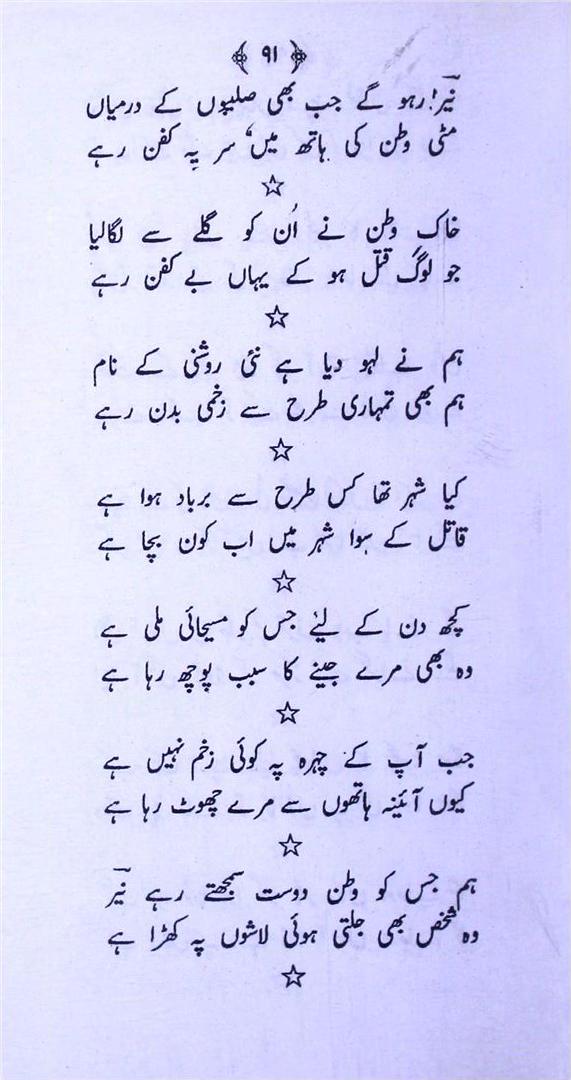 ۹۱
نیرؔ! رہو گے جب بھی صلیبوں کے درمیاں
مٹی وطن کی ہاتھ میں، سر پہ کفن رہے
☆
خاکِ وطن نے اُن کو گلے سے لگالیا
جو لوگ قتل ہو کے یہاں بے کفن رہے
☆
ہم نے لہو دیا ہے نئی روشنی کے نام
ہم بھی تمہاری طرح سے زخمی بدن رہے
☆
کیا شہر تھا کس طرح سے برباد ہوا ہے
قاتل کے سوا شہر میں اب کون بچا ہے
☆
کچھ دن کے لیئے جس کو مسیحائی ملی ہے
وہ بھی مرے جینے کا سبب پوچھ رہا ہے
☆
جب آپ کے چہرہ پہ کوئی زخم نہیں ہے
کیوں آئینہ ہاتھوں سے مرے چھوٹ رہا ہے
☆
ہم جس کو وطن دوست سمجھتے رہے نیرؔ
وہ شخص بھی جلتی ہوئی لاشوں پہ کھڑا ہے
☆